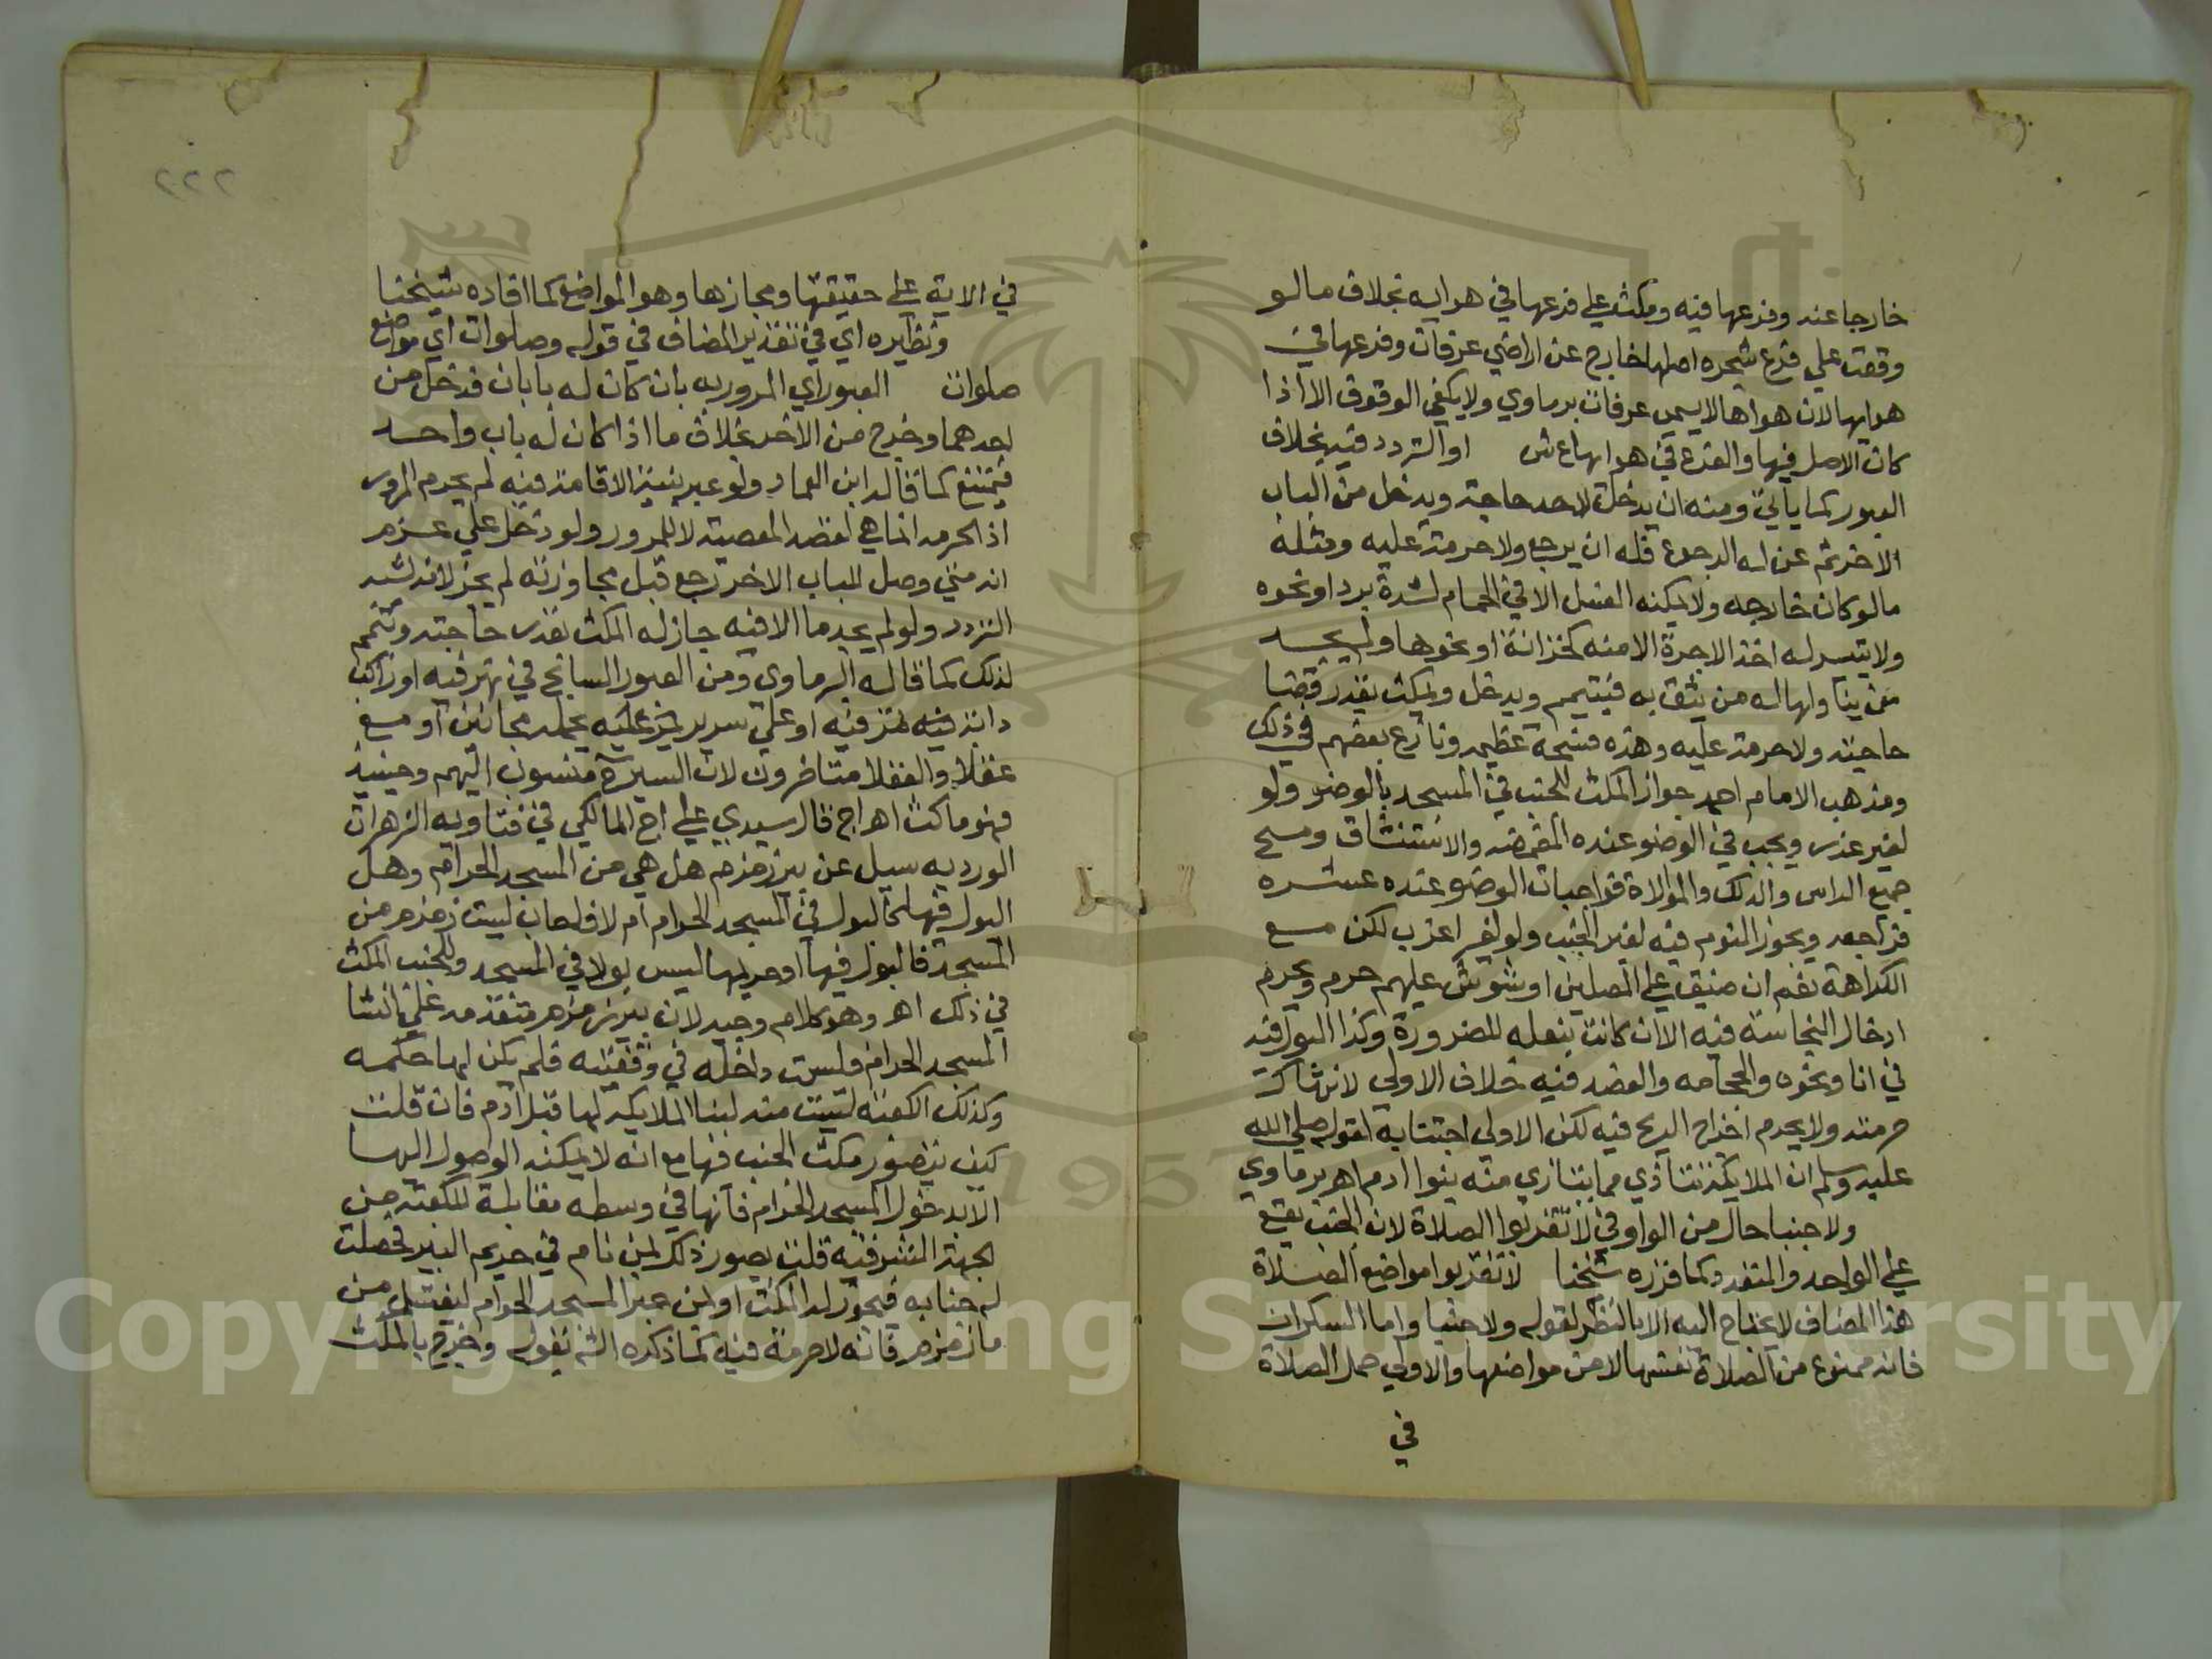 خارجا عنه وفرعها فيه ومكث علي فرعها في هوايه بخلاف ما لو
وقفت علي فرع شجره اصلها خارج عن اراضي عرفات وفرعها في
هوايها لان هواها لا يسمي عرفات برماوي ولا يكفي الوقوف الا اذا
كان الاصل فيها والفرع في هوايها ع ش او التردد فيه بخلاف
العبور كما ياتي ومنه ان يدخل لاحد حاجته ويدخل من الباب
الاخر ثم عن له الرجوع فله ان يرجع ولا حرمة عليه ومثله
ما لو كان خارجه ولا يمكنه الغسل الا في الحمام لشدة برد او نحوه
ولا يتيسر له اخذ الاجرة الا منه كخزانة او نحوها ولم يجد
من يناولها له من يثق به فيتيمم ويدخل ويمكث بقدر قضا
حاجته ولا حرمة عليه وهذه فسحة عظيمه ونازع بعضهم في ذلك
ومذهب الامام احمد جواز المكث للجنب في المسجد بالوضو ولو
لغير عذر ويجب في الوضو عنده المضمضه والاستنشاق ومسح
جميع الراس والدلك والموالاة فواجبات الوضو عنده عشره
فراجعه ويجوز النوم فيه لغير الجنب ولو لغير اعزب لكن مع
الكراهة نعم ان ضيق علي المصلين او شوش عليهم حرم ويحرم
ادخال النجاسة فيه الا ان كانت بنعله للضرورة وكذا البول فيه
في انا ونحوه والحجامه والفصد فيه خلاف الاولي لانها
حرمته ولا يحرم اخراج الريح فيه لكن الاولي اجتنابه لقوله صلي الله
عليه وسلم ان الملايكة تتاذي مما يتاذي منه بنوا ادم اهـ برماوي
ولا جنبا حال من الواو في لا تقربوا الصلاة لان الجنب يقع
علي الواحد والمتعدد كما قرره شيخنا لا تقربوا مواضع الصلاة
هذا المضاف لا يحتاج اليه الا بالنظر لقوله ولا جنبا واما السكران
فانه ممنوع من الصلاة نفسها لا من مواضعها والاولي حمل الصلاة
في
٢٢٢
في الاية علي حقيقتها ومجازها وهو المواضع كما افاده شيخنا
ونظيره اي في تقدير المضاف في قوله وصلوات اي مواضع
صلوات العبور اي المرور به بان كان له بابان فدخل من
احدهما وخرج من الاخر بخلاف ما اذا كان له باب واحد
فيمتنع كما قاله ابن العماد ولو عبر بنية الاقامة فيه لم يحرم المرور
اذ الحرمه انما هي لقصد المعصية لا للمرور ولو دخل علي عزم
انه متي وصل للباب الاخر رجع قبل مجاوزته لم يجز لانه يشبه
التردد ولو لم يجد ما الا فيه جاز له المكث بقدر حاجته وتيمم
لذلك كما قاله البرماوي ومن العبور السابح في نهر فيه او راكب
دابة فيه تمر فيه او علي سرير يمر عليه يحمله مجانين او مع
عقلا والعقلا متاخرون لان السير ح منسوب اليهم وحينيذ
فهو ماكث اهـ اج قال سيدي علي اج المالكي في فتاويه الزهرات
الورديه سيل عن بير زمزم هل هي من المسجد الحرام وهل
البول فيها كالبول في المسجد الحرام ام لا فاجاب ليست زمزم من
المسجد فالبول فيها او حريمها ليس بولا في المسجد وللجنب المكث
في ذلك اهـ وهو كلام وجيه لان بير زمزم متقدمه علي انشا
المسجد الحرام وليست داخله في وقفيته فلم يكن لها حكمه
وكذلك الكعبة ليست منه لبنا الملايكه لها قبل ادم فان قلت
كيف يتصور مكث الجنب فيها مع انه لا يمكنه الوصول اليها
الا بدخول المسجد الحرام فانها في وسطه مقابلة للكعبة من
الجهة الشرقيه قلت يصور ذلك لمن نام في حريم البير فحصلت
له جنابه فيجوز له المكث او لمن عبر المسجد الحرام ليغتسل من
ما زمزم فانه لا حرمة فيه كما ذكره الش بقوله وخرج بالمكث
Copyright © King Saud University
1957